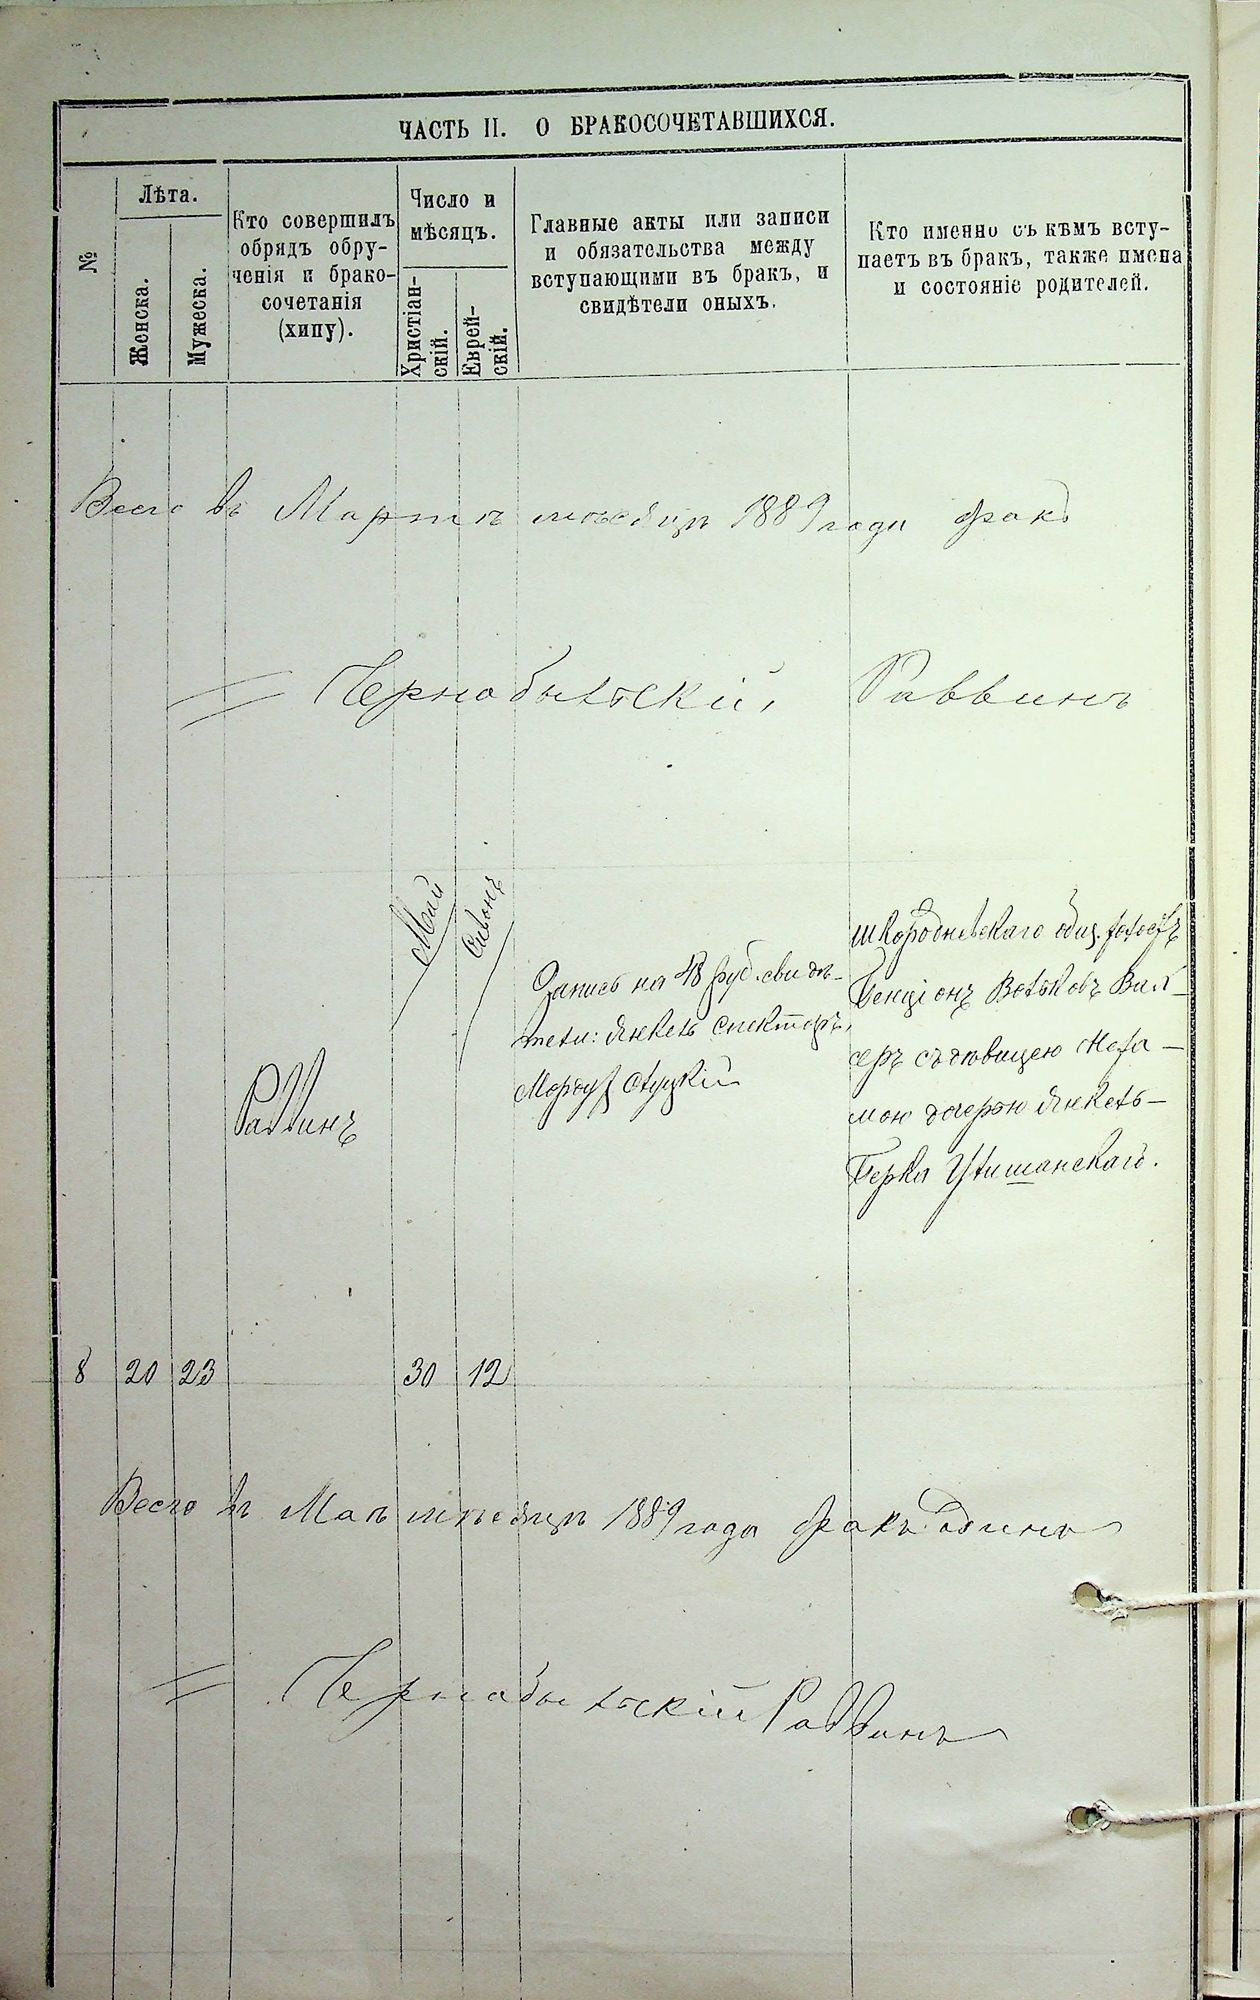 ЧАСТЬ II. О БРАКОСОЧЕТАВШИХСЯ.
№
Лѣта.
Женска.
Мужеска.
Кто совершилъ
обрядъ обру-
ченія и брако-
сочетанія
(хипу).
Число и
мѣсяцъ.
Христіан-
скій.
Еврей-
скій.
Главные акты или записи
и обязательства между
вступающими въ бракъ, и
свидѣтели оныхъ.
Кто именно съ кѣмъ всту-
паетъ въ бракъ, также имена
и состояніе родителей.
Всего въ Мартѣ мѣсяцѣ 1889 года
Чернобыльскій, Раввинъ
8
20
23
Раввинъ
Май
30
Сивонъ
12
Запись на 48 руб. свидѣ-
тели: Янкель Спекторъ,
Мордух Слуцкій
Шкороднѣвскаго общ.
Бенціонъ Вольковъ Вал-
серъ съ дѣвицею Неха-
мою дочерью Янкель-
Берка
Всего въ Маѣ мѣсяцѣ 1889 года бракъ одинъ
Чернобыльскій Раввинъ